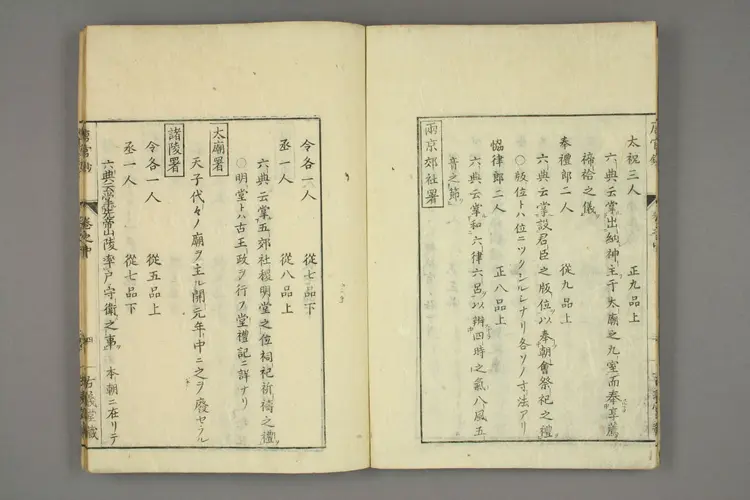 太祝三人 正九品上
六典云掌出納神主于太廟之九室而奉享薦
禘祫之儀
奉禮郎二人 從九品上
六典云掌設君臣之版位以奉朝會祭祀之禮
○版位トハ位ニツクシルシナリ各ソノ寸法アリ
協律郎二人 正八品上
六典云掌和六律六呂以辨四時之氣八風五
音之節
兩京郊社署
令各一人 從七品下
丞一人 從八品上
六典云掌五郊社稷明堂之位祠祀祈禱之禮
○明堂トハ古王政ヲ行フ堂禮記ニ詳ナリ
太廟署
天子代々ノ廟ヲ主ル開元年中ニ之ヲ廢セラル
諸陵署
令各一人 從五品上
丞一人 從七品下
六典云掌先帝山陵率戶守衛之事 本朝ニ在リテ
古義堂藏